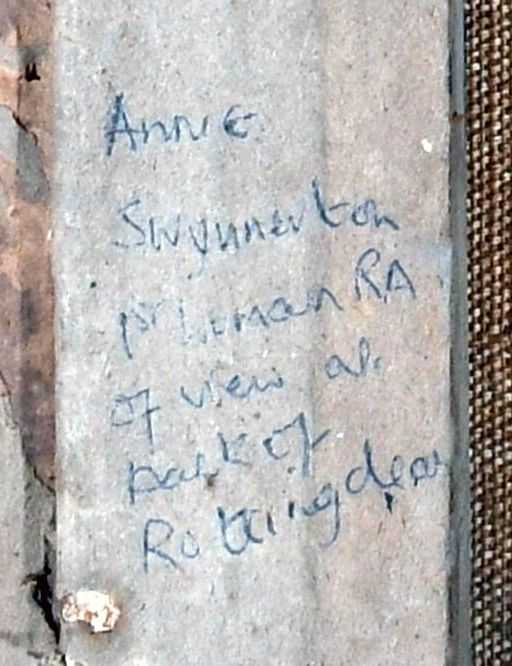 Annie
Swynnerton
1st woman RA
of view at
back of
Rottingdean